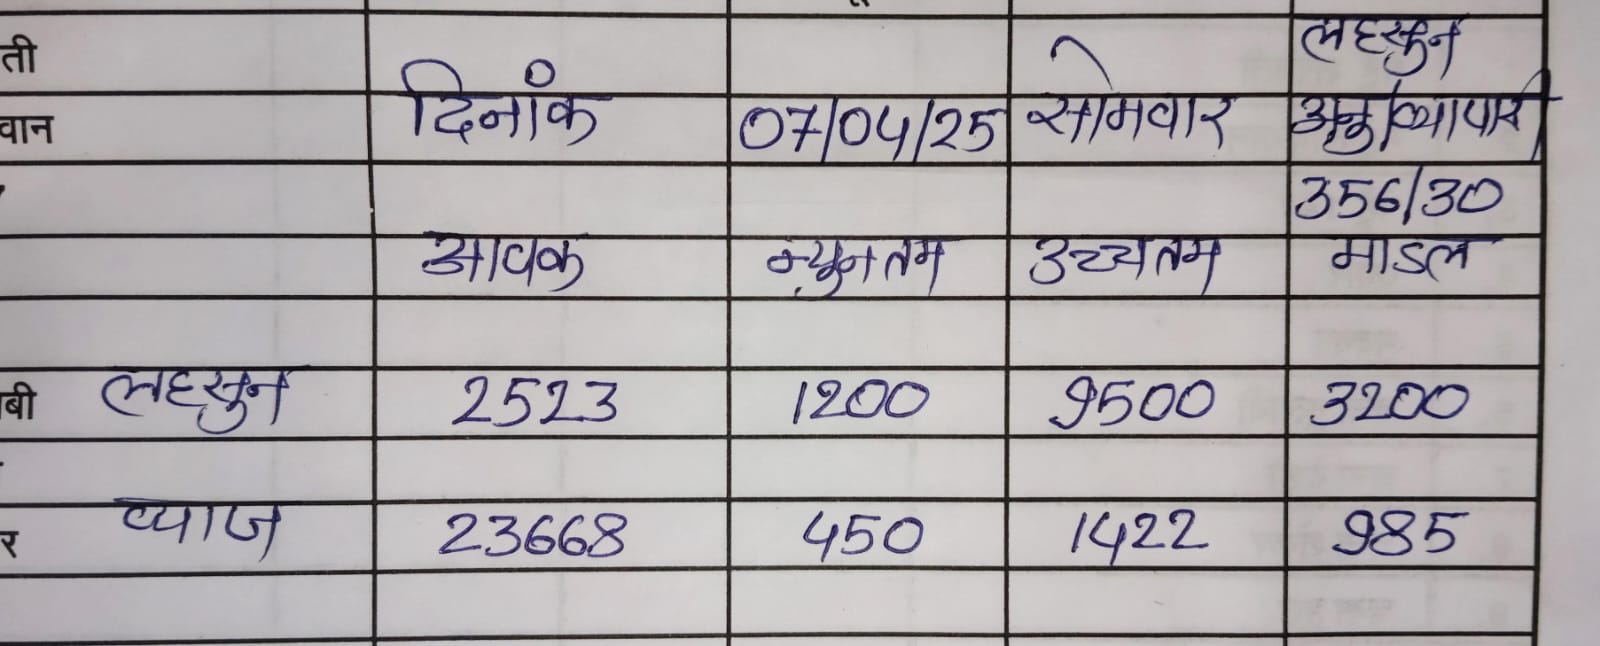 ती लहसुन
वान दिनांक 07/04/25 सोमवार अनु/व्यापारी
356/30
आवक न्युनतम उच्चतम माडल
बी लहसुन 2523 1200 9500 3200
र प्याज 23668 450 1422 985